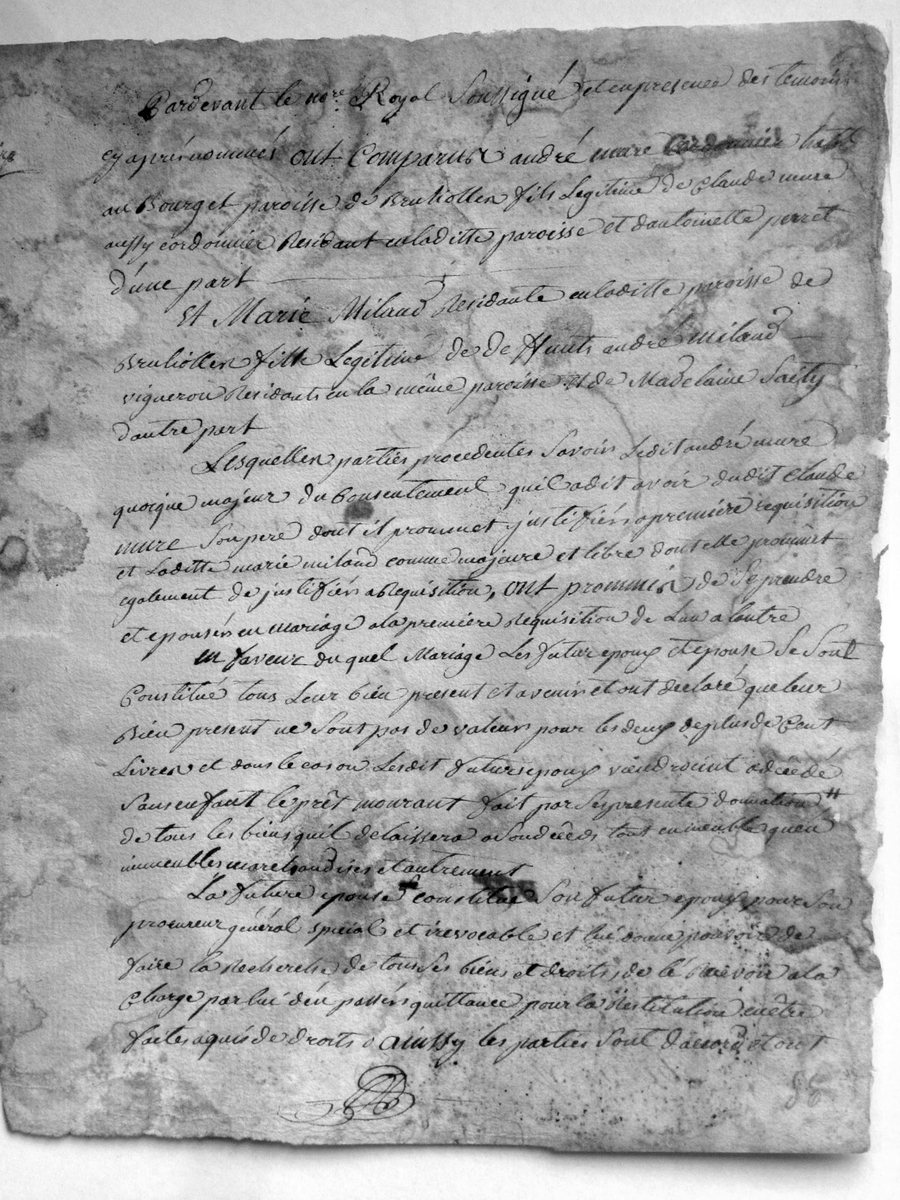 Pardevant le nore Royal Soussigné et en presence des temoins
cy aprés nommés ont comparus andré mure Cordonnier
au Bourg et paroisse de Brulliolles fils Legitime de Claude mure
aussy cordonnier Residant en laditte paroisse et dantoinette perret
d'une part
Et Marie Milaud Residante en laditte paroisse de
Brulliolles fille Legitime de de andré Milaud
vigneron Residants en la même paroisse et de Madelaine
dautre part
Lesquelles parties procedentes Savoir Ledit andré mure
quoique majeur du Consentement quil a dit avoir dudit Claude
mure Son pere dont il prommet y justifiér a premiére requisition
et Laditte marie milaud comme majeure et libre dont elle prommet
également de justifiér a Requisition, ont prommis de Se prendre
et epousér en mariage a la premiére Requisition de Lun a lautre
En faveur du quel Mariage Les futur epoux et epouse Se Sont
Constitué tous Leur bien present et avenir et ont declaré que leur
Bien present ne Sont pas de valeur pour les deux de plus de Cent
Livres et dans le cas ou Lesdit futurs epoux viendroient a décédé
Sans enfant le prêt mourant fait par Ses presente donnation
de tous les biens quil delaissera a Son décéds tout en meuble quen
immeubles marchandises et autrement
La future epouse constitue Son futur epoux pour Son
procureur général spécial et irevocable et lui donne pouvoir de
faire la Recherche de tous Ses biens et droits, de lé Recevoir a la
Charge par lui dén passér quittance pour la Restitution en être
faites a qui de droits ainssy les parties Sont daccord et ont
88